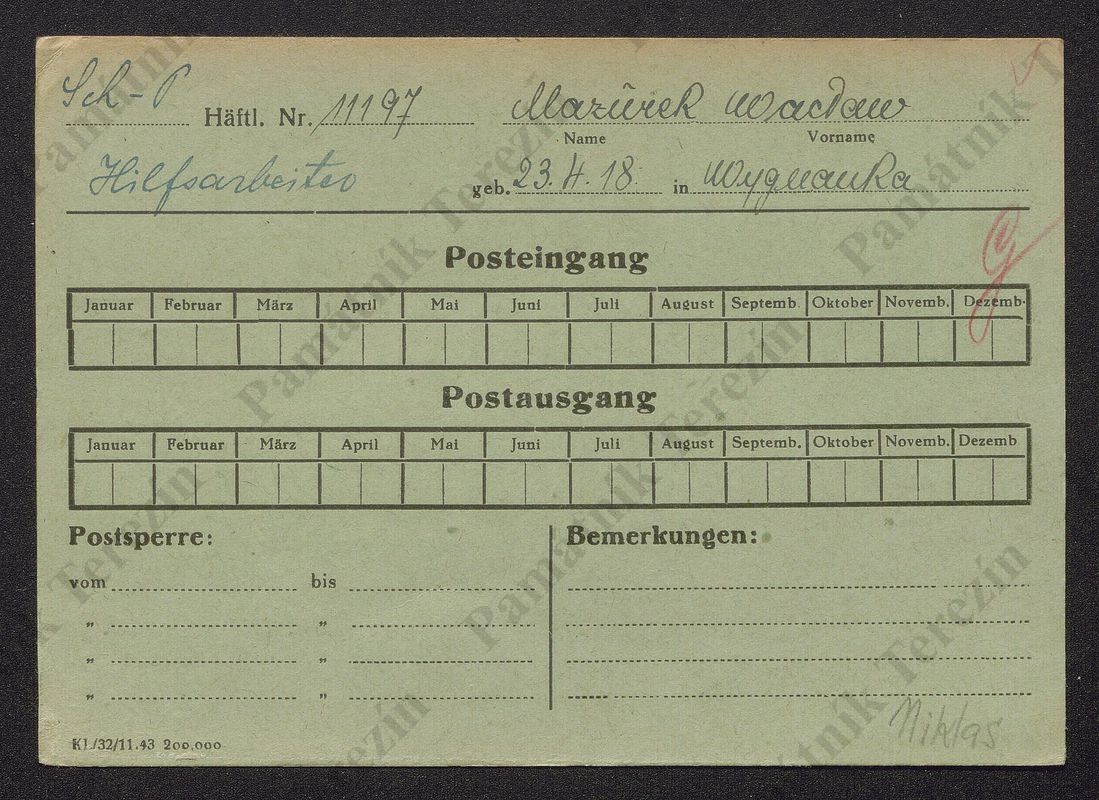 Sch-P
Häftl. Nr. 11197 Mazurek Wacław
Name Vorname
Hilfsarbeiter geb. 23.4.18 in Wygnanka
Posteingang
Januar Februar März April Mai Juni Juli August Septemb. Oktober Novemb. Dezemb.
Postausgang
Januar Februar März April Mai Juni Juli August Septemb. Oktober Novemb. Dezemb
Postsperre: Bemerkungen:
vom bis
„ „
„ „
„ „
Niklas
KL/32/11.43 200.000
Památník Terezín